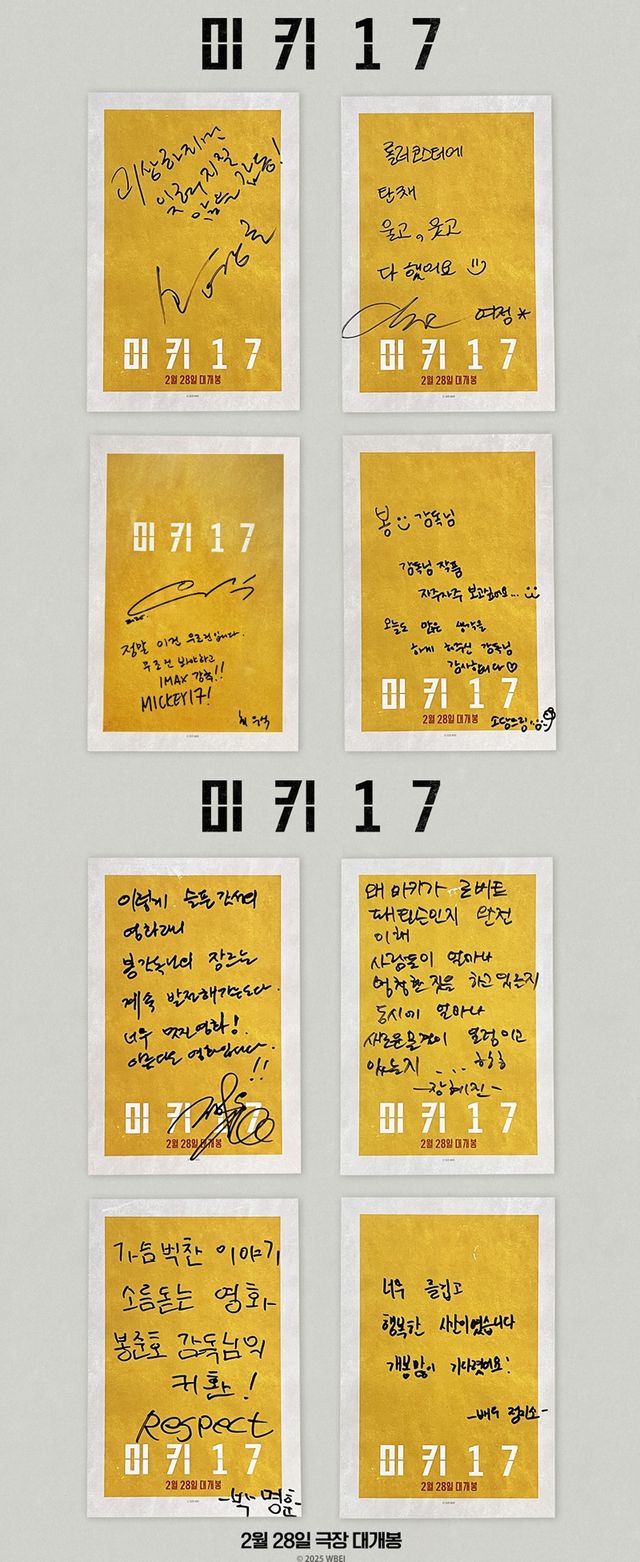 미키17
괴상하지만
잊혀지질
않을 감동!
롤러코스터에
탄채
울고, 웃고
다 했어요
여정*
미키17
2월 28일 대개봉
미키17
2월 28일 대개봉
미키17
정말 이건 우주전입니다.
무조건 봐야하고
IMAX 강추!!
MICKEY17!
최우식
봉 감독님
감독님 작품
자주자주 보고싶어요...
오늘도 많은 생각을
하게 해주신 감독님
감사합니다♡
미키17
2월 28일 대개봉
소담드림
미키17
이렇게 슬픈 간식의
영화라니
봉감독님의 장르는
계속 발전해가는도다.
너무 멋진영화!
아름다운 영화입니다.
!!
미키17
2월 28일 대개봉
왜 미키가 로버트
패틴슨인지 완전
이해
사람들이 얼마나
멍청한 짓을 하고 있는지
동시에 얼마나
새로운 물결이 울렁이고
있는지 ... ㅎㅎㅎ
-장혜진-
미키17
2월 28일 대개봉
가슴벅찬 이야기
소름돋는 영화
봉준호 감독님의
귀환!
Respect
미키17
2월 28일 대개봉
-박명훈-
너무 즐겁고
행복한 시간이였습니다
개봉많이 기다렸어요!
-배우 정지소-
미키17
2월 28일 대개봉
2월 28일 극장 대개봉
© 2025 WBEI